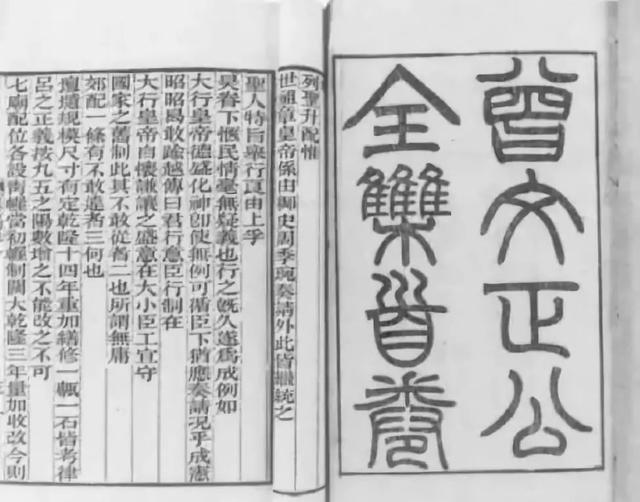 曾文正公
全集首卷
列聖升配惟
世祖章皇帝係由御史周季琬奏請外此皆繼統之
聖人特旨舉行良由上孚
昊眷下愜民情毫無疑義也行之既久遂爲成例如
大行皇帝德盛化神卽使無例可循臣下猶應奏請況乎成憲
昭昭曷敢踰越傳曰君行意臣行制在
大行皇帝自懷謙讓之盛意在大小臣工宜守
國家之舊制此其不敢從者二也所謂無庸
郊配一條有不敢違者三何也
壇壝規模尺寸有定乾隆十四年重加繕修一甎一石皆考律
呂之正義按九五之陽數增之不能改之不可
七廟配位各設靑幄當初幄制闊大乾隆三年量加收改今則